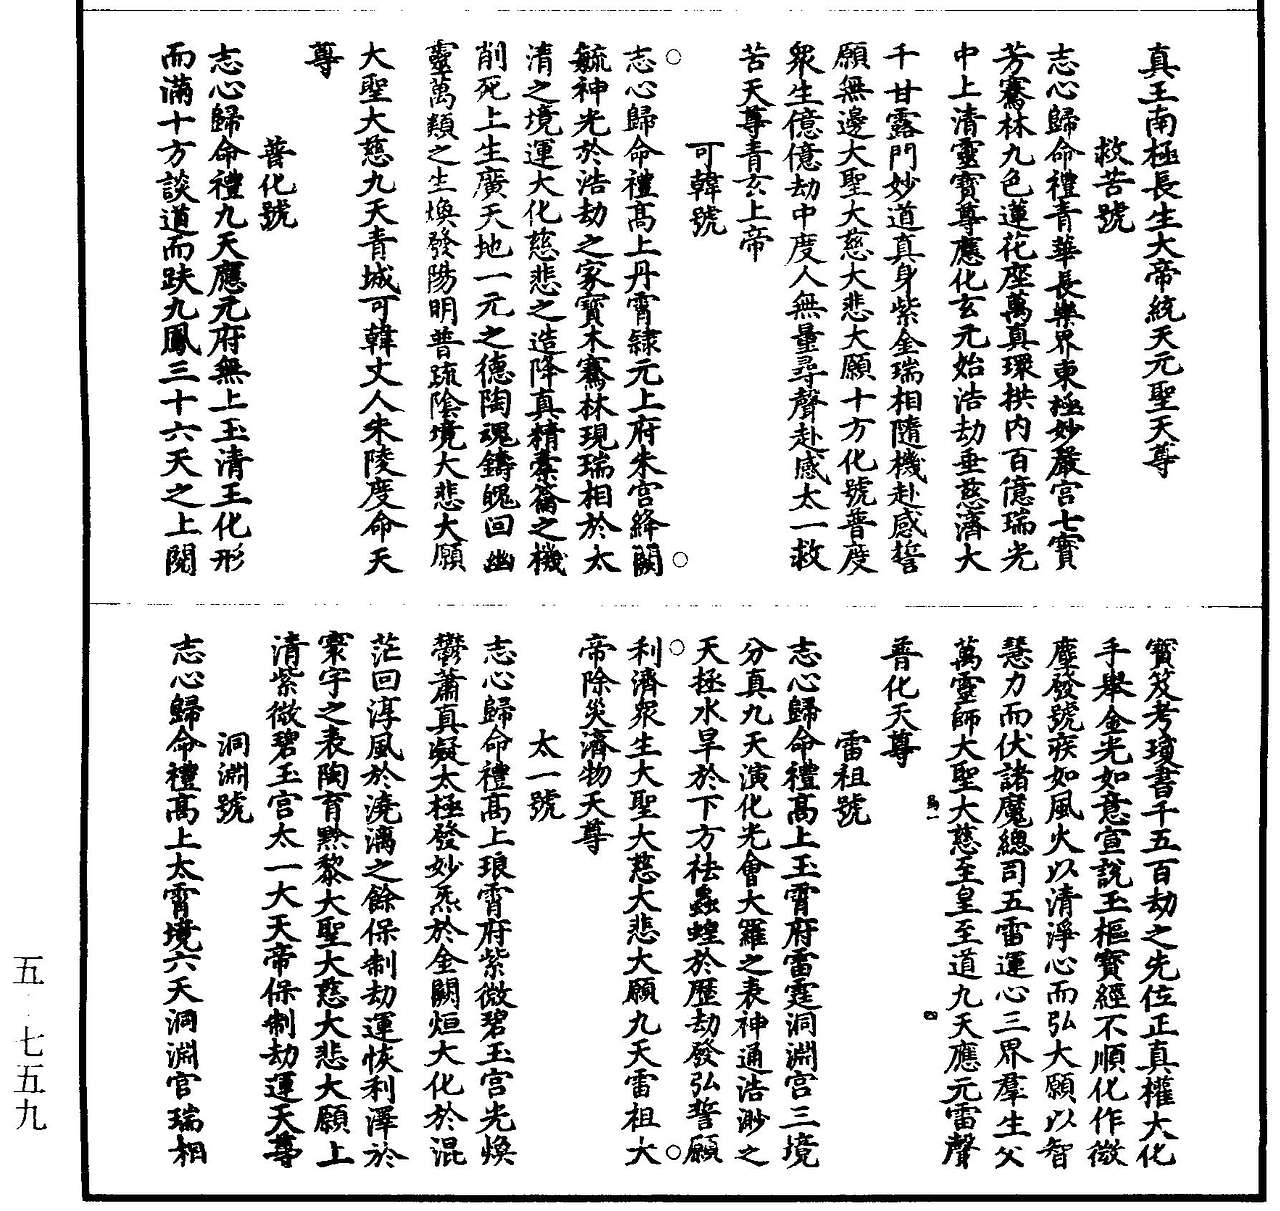 真王南極長生大帝統天元聖天尊
救苦號
志心歸命禮青華長樂界東極妙嚴宮七寶
芳騫林九色蓮花座萬真環拱內百億瑞光
中上清靈寶尊應化玄元始浩劫垂慈濟大
千甘露門妙道真身紫金瑞相隨機赴感誓
願無邊大聖大慈大悲大願十方化號普度
眾生億億劫中度人無量尋聲赴感太一救
苦天尊青玄上帝
可韓號
志心歸命禮高上丹霄隸元上府朱宮絳闕
毓神光於浩劫之家寶木騫林現瑞相於太
清之境運大化慈悲之造降真精橐籥之機
削死上生廣天地一元之德陶魂鑄魄回幽
靈萬類之生煥發陽明普疏陰境大悲大願
大聖大慈九天青城可韓丈人朱陵度命天
尊
普化號
志心歸命禮九天應元府無上玉清王化形
而滿十方談道而趺九鳳三十六天之上閱
寶笈考瓊書千五百劫之先位正真權大化
手舉金光如意宣說玉樞寶經不順化作微
塵發號疾如風火以清淨心而弘大願以智
慧力而伏諸魔總司五雷運心三界羣生父
萬靈師大聖大慈至皇至道九天應元雷聲
普化天尊
雷祖號
志心歸命禮高上玉霄府雷霆洞淵宮三境
分真九天演化光會大羅之表神通浩渺之
天拯水旱於下方祛蟲蝗於歷劫發弘誓願
利濟眾生大聖大慈大悲大願九天雷祖大
帝除災濟物天尊
太一號
志心歸命禮高上琅霄府紫微碧玉宮光煥
鬱蕭真凝太極發妙炁於金闕烜大化於混
茫回淳風於澆漓之餘保制劫運恢利澤於
寰宇之表陶育黔黎大聖大慈大悲大願上
清紫微碧玉宮太一大天帝保制劫運天尊
洞淵號
志心歸命禮高上太霄境六天洞淵宮瑞相
五·七五九